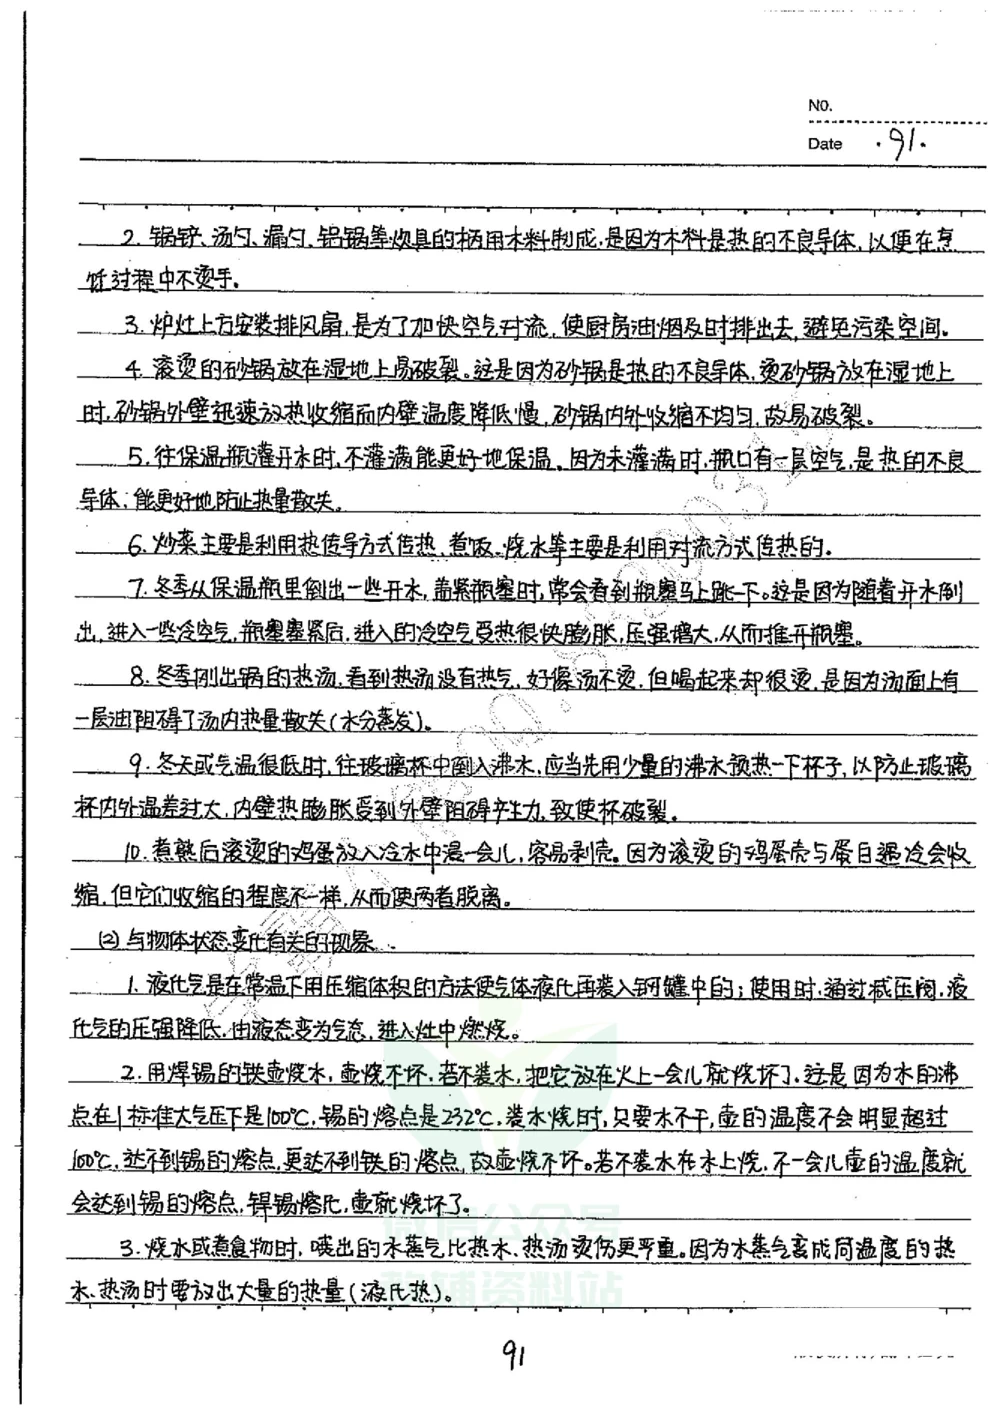 NO.
Date .91.
2. 锅铲、汤勺、漏勺、铝锅等炊具的柄用木料制成,是因为木料是热的不良导体,以便在烹
饪过程中不烫手。
3. 炉灶上方安装排风扇,是为了加快空气对流,使厨房油烟及时排出去,避免污染空间。
4. 滚烫的砂锅放在湿地上易破裂。这是因为砂锅是热的不良导体,烫砂锅放在湿地上
时,砂锅外壁迅速放热收缩而内壁温度降低慢,砂锅内外收缩不均匀,故易破裂。
5. 往保温瓶灌开水时,不灌满能更好地保温。因为未灌满时,瓶口有一层空气,是热的不良
导体,能更好地防止热量散失。
6. 炒菜主要是利用热传导方式传热,煮饭、烧水等主要是利用对流方式传热的。
7. 冬季从保温瓶里倒出一些开水,盖紧瓶塞时,常会看到瓶塞马上跳一下。这是因为随着开水倒
出,进入一些冷空气,瓶塞塞紧后,进入的冷空气受热很快膨胀,压强增大,从而推开瓶塞。
8. 冬季刚出锅的热汤,看到热汤没有热气,好像汤不烫,但喝起来却很烫,是因为汤面上有
一层油阻碍了汤内热量散失(水分蒸发)。
9. 冬天或气温很低时,往玻璃杯中倒入沸水,应当先用少量的沸水预热一下杯子,以防止玻璃
杯内外温差过大,内壁热膨胀受到外壁阻碍产生力,致使杯破裂。
10. 煮熟后滚烫的鸡蛋放入冷水中浸一会儿,容易剥壳。因为滚烫的鸡蛋壳与蛋白遇冷会收
缩,但它们收缩的程度不一样,从而使两者脱离。
(2) 与物体状态变化有关的现象
1. 液化气是在常温下用压缩体积的方法使气体液化再装入钢罐中的;使用时,通过减压阀,液
化气的压强降低,由液态变为气态,进入灶中燃烧。
2. 用焊锡的铁壶烧水,壶烧不坏,若不装水,把它放在火上一会儿就烧坏了。这是因为水的沸
点在1标准大气压下是100℃,锡的熔点是232℃,装水烧时,只要水不干,壶的温度不会明显超过
100℃,达不到锡的熔点,更达不到铁的熔点,故壶烧不坏。若不装水在火上烧,不一会儿壶的温度就
会达到锡的熔点,焊锡熔化,壶就烧坏了。
3. 烧水或煮食物时,喷出的水蒸气比热水、热汤烫伤更严重。因为水蒸气变成同温度的热
水、热汤时要放出大量的热量(液化热)。
微信公众号
教辅资料站
91